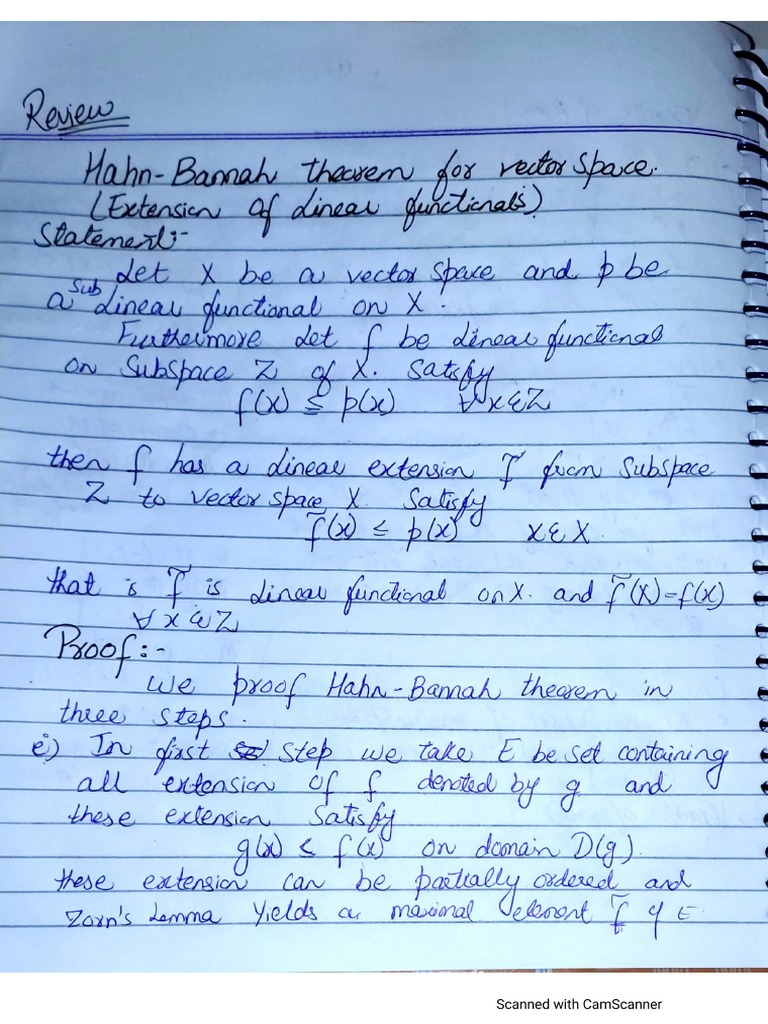 Review
Hahn-Banah theorem for vector space.
(Extension of Linear functionals)
Statement:-
Let X be a vector space and p be
a sub Linear functional on X.
Furthermore Let f be Linear functional
on Subspace Z of X. Satisfy
f(x) ≤ p(x) ∀ x ∈ Z
then f has a Linear extension f̃ from subspace
Z to vector space X. Satisfy
f̃(x) ≤ p(x) x ∈ X.
that is f̃ is Linear functional on X. and f̃(x) = f(x)
∀ x ∈ Z
Proof:-
We proof Hahn-Banah theorem in
three steps.
i) In first step we take E be set containing
all extension of f denoted by g and
these extension satisfy
g(x) ≤ f(x) on domain D(g).
these extension can be partially ordered and
Zorn's Lemma Yields a maximal element f̃ of E.
Scanned with CamScanner